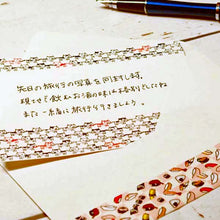 先日の旅行の写真を同封します。
現地で飲んだお酒の味は格別でしたね
また一緒に旅行に行きましょう。